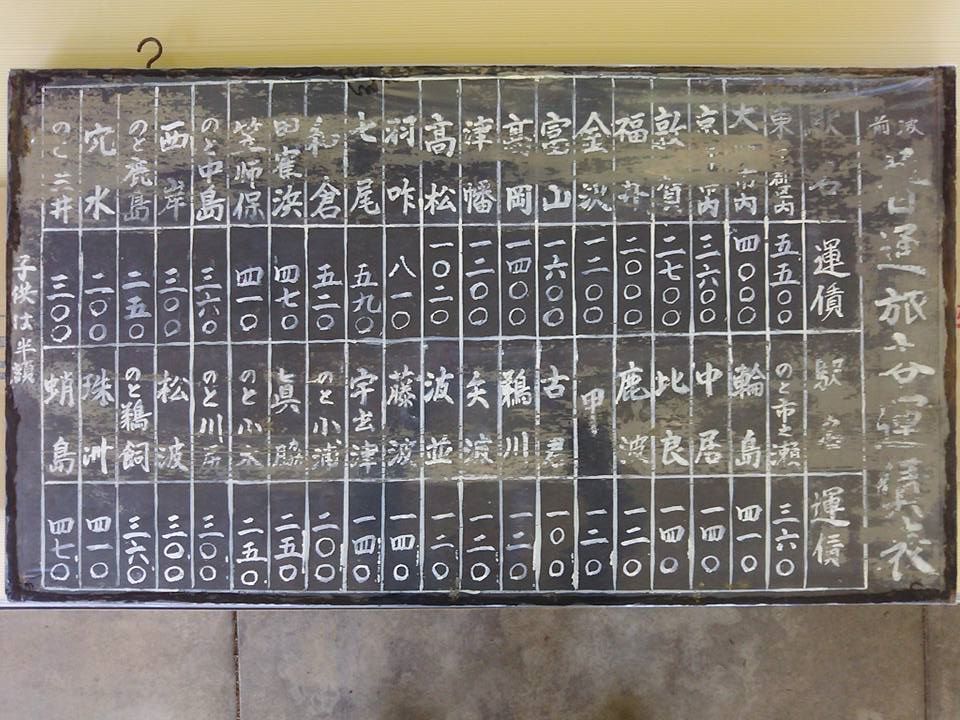 前波
旅客運賃表
駅名 運賃
東 都区内 五五〇〇
大 市内 四〇〇〇
京 市内 三六〇〇
敦賀 二七〇〇
福井 二〇〇〇
金沢 一二〇〇
富山 一六〇〇
高岡 一四〇〇
津幡 一二〇〇
高松 一〇二〇
羽咋 八一〇
七尾 五九〇
和倉 五二〇
田隺浜 四七〇
笠師保 四一〇
のと中島 三六〇
西岸 三〇〇
のと鹿島 二五〇
穴水 二〇〇
のと三井 三〇〇
駅名 運賃
のと市ノ瀬 三六〇
輪島 四一〇
中居 一四〇
比良 一四〇
鹿波 一二〇
甲 一二〇
古君 一〇〇
鵜川 一二〇
矢波 一二〇
波並 一二〇
藤波 一四〇
宇出津 一四〇
のと小浦 二〇〇
真脇 二五〇
のと小木 二五〇
のと川尻 三〇〇
松波 三〇〇
のと鵜飼 三六〇
珠洲 四一〇
蛸島 四七〇
子供は半額